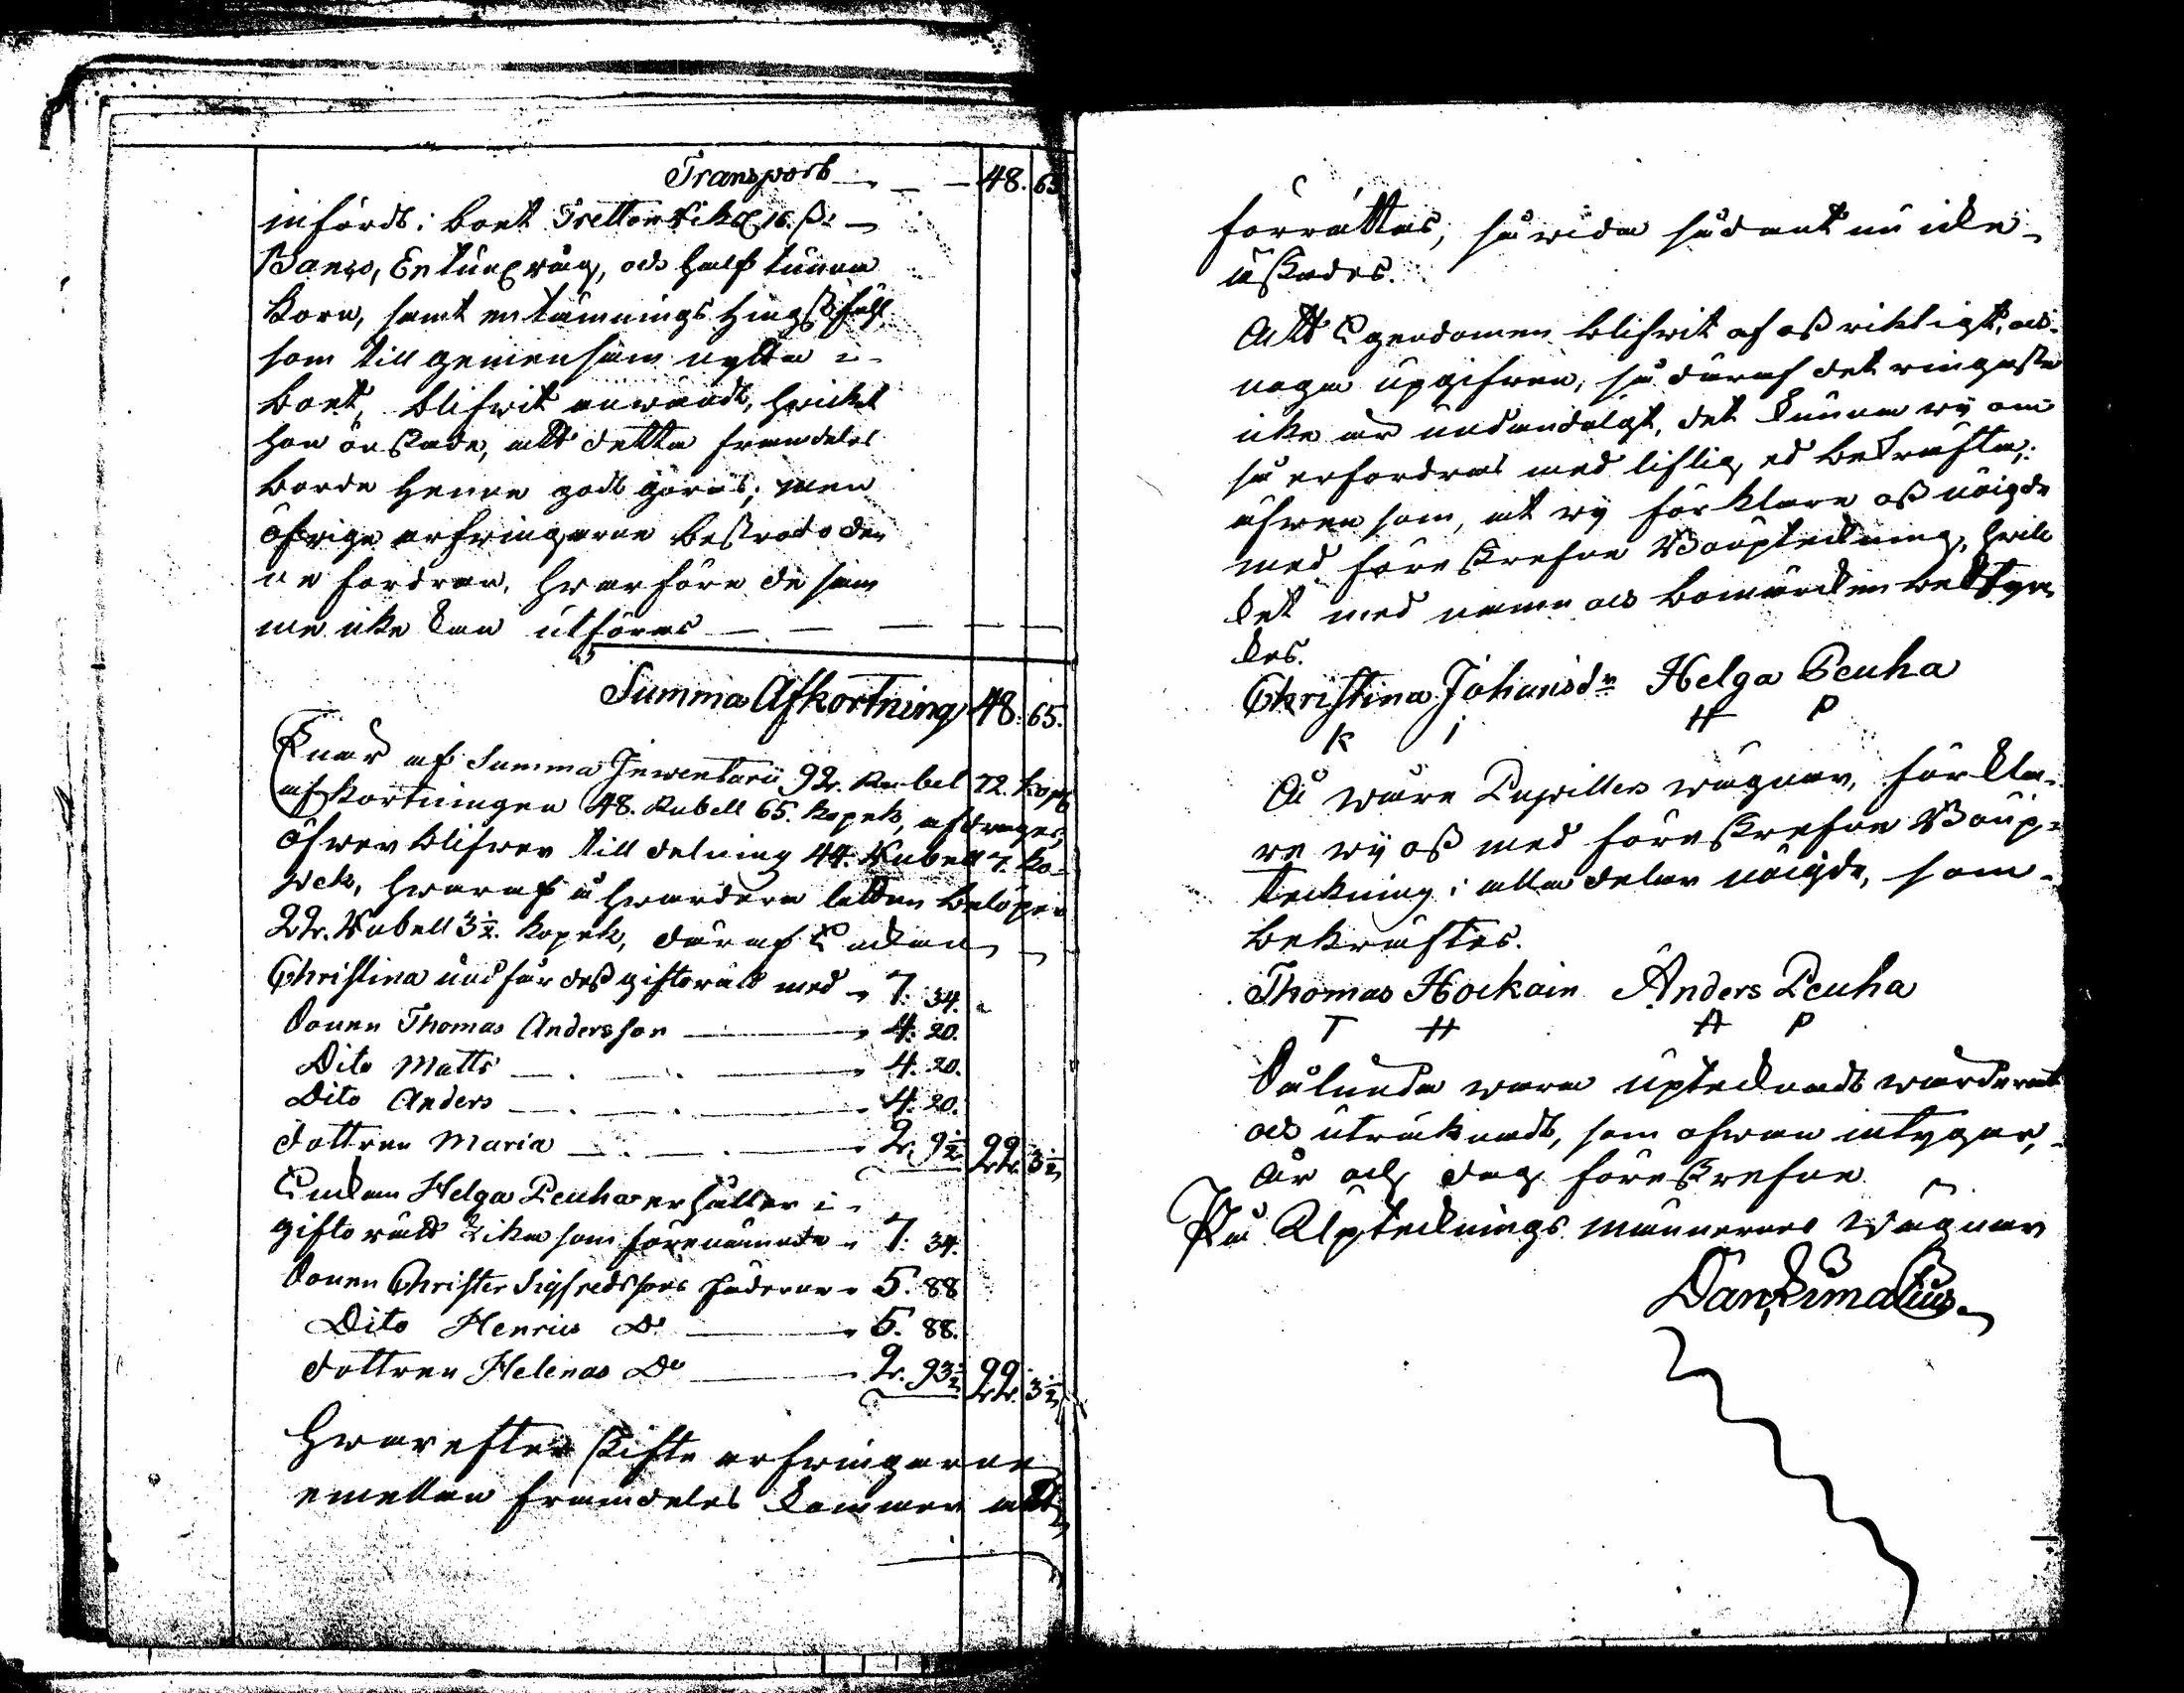 Transport — — — 48. 65
infördt i boet Tretton Rikd 16. ß:r —
Banco, En tunna råg, och half tunna
korn, samt en tämnings hingstfåhl,
som till gemensam nytta i
boet, blifwit anwändt, hwilket
hon önskade, att detta framdeles
borde henne godt göras; men
öfrige arfwingarne bestrodo den
ne fordran, hwarföre de sam
me icke kan utföras — — — —
Summa Afkortning 48. 65.
Enär af Summa Inwentarii 92. Rubel 72. kop:
afkortningen 48. Rubell 65. kopek, afdrages,
öfwer blifwer till delning 44. Rubell 7. ko-
pek, hwaraf å hwardera lotten belöper
22. Rubell 3½. kopek, däraf Enckan
Christina undfår dess giftorätt med " 7. 34.
Sonen Thomas Andersson — " 4. 20.
Dito Matts — . — . — " 4. 20.
Dito Anders — . — . — " 4. 20.
dottren Maria — . — . — " 2. 9½ 22. 3½
Enckan Helga Peuha erhåller i
giftorätt lika som förenämnde " 7. 34.
Sonen Christer Sigfredssons fäderne " 5. 88
Dito Henrics Do — " 5. 88.
dottren Helenas Do — " 2. 93½ 22. 3½
Hwarefter skifte arfwingarne
emellan framdeles kommer att
förrättas, så wida sådant nu icke
åskades.
Att Egendomen blifwit af oss riktigt, och
noga upgifwen, så däraf det ringaste
icke är undandolgt, det kunna wij om
så erfordras med liflig ed bekräfta;
äfwen som, at wij förklare oss nöigde
med föreskrefne Bouptekning, hwil
ket med namn och bomärcken bekräf
tes.
Christina Johansdr Helga Peuha
K I H P
Å wåre Pupillers wägnar, förkla-
re wij oss med föreskrefne Boup-
tekning i alla delar nöigde, som
bekräftes.
Thomas Hockain Anders Peuha
T H A P
Sålunda wara uptecknadt wärderat
och uträknadt, som ofwan intygar,
År och dag föreskrefne
På Uptecknings männernes wägnar